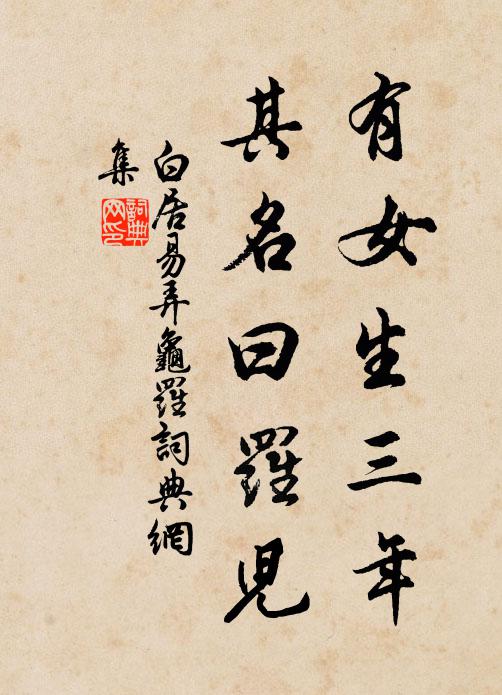 有女生三年
其名曰羅兒
白居易弄龜羅詞典網
集
詞典
网印